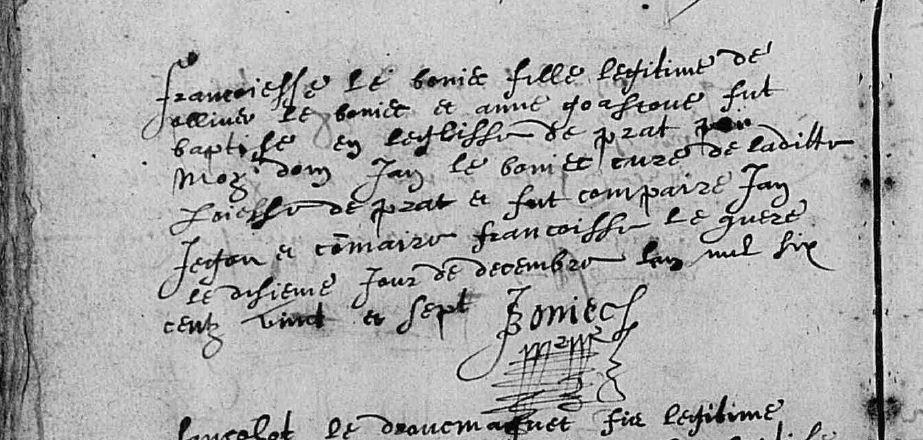 francoiesse le boniec fille legitime de
ollivier le boniec et anne goascoue fut
baptise en leglisse de prat par
moy dom Jan le boniec curé de laditte
poiesse de prat et fut compaire Jan
Jegou et cōmaire francoisse le guere
le disieme Jour de decembre lan mil six
centz vinct et sept Boniech
lancelot le drouemaguet fis legitime